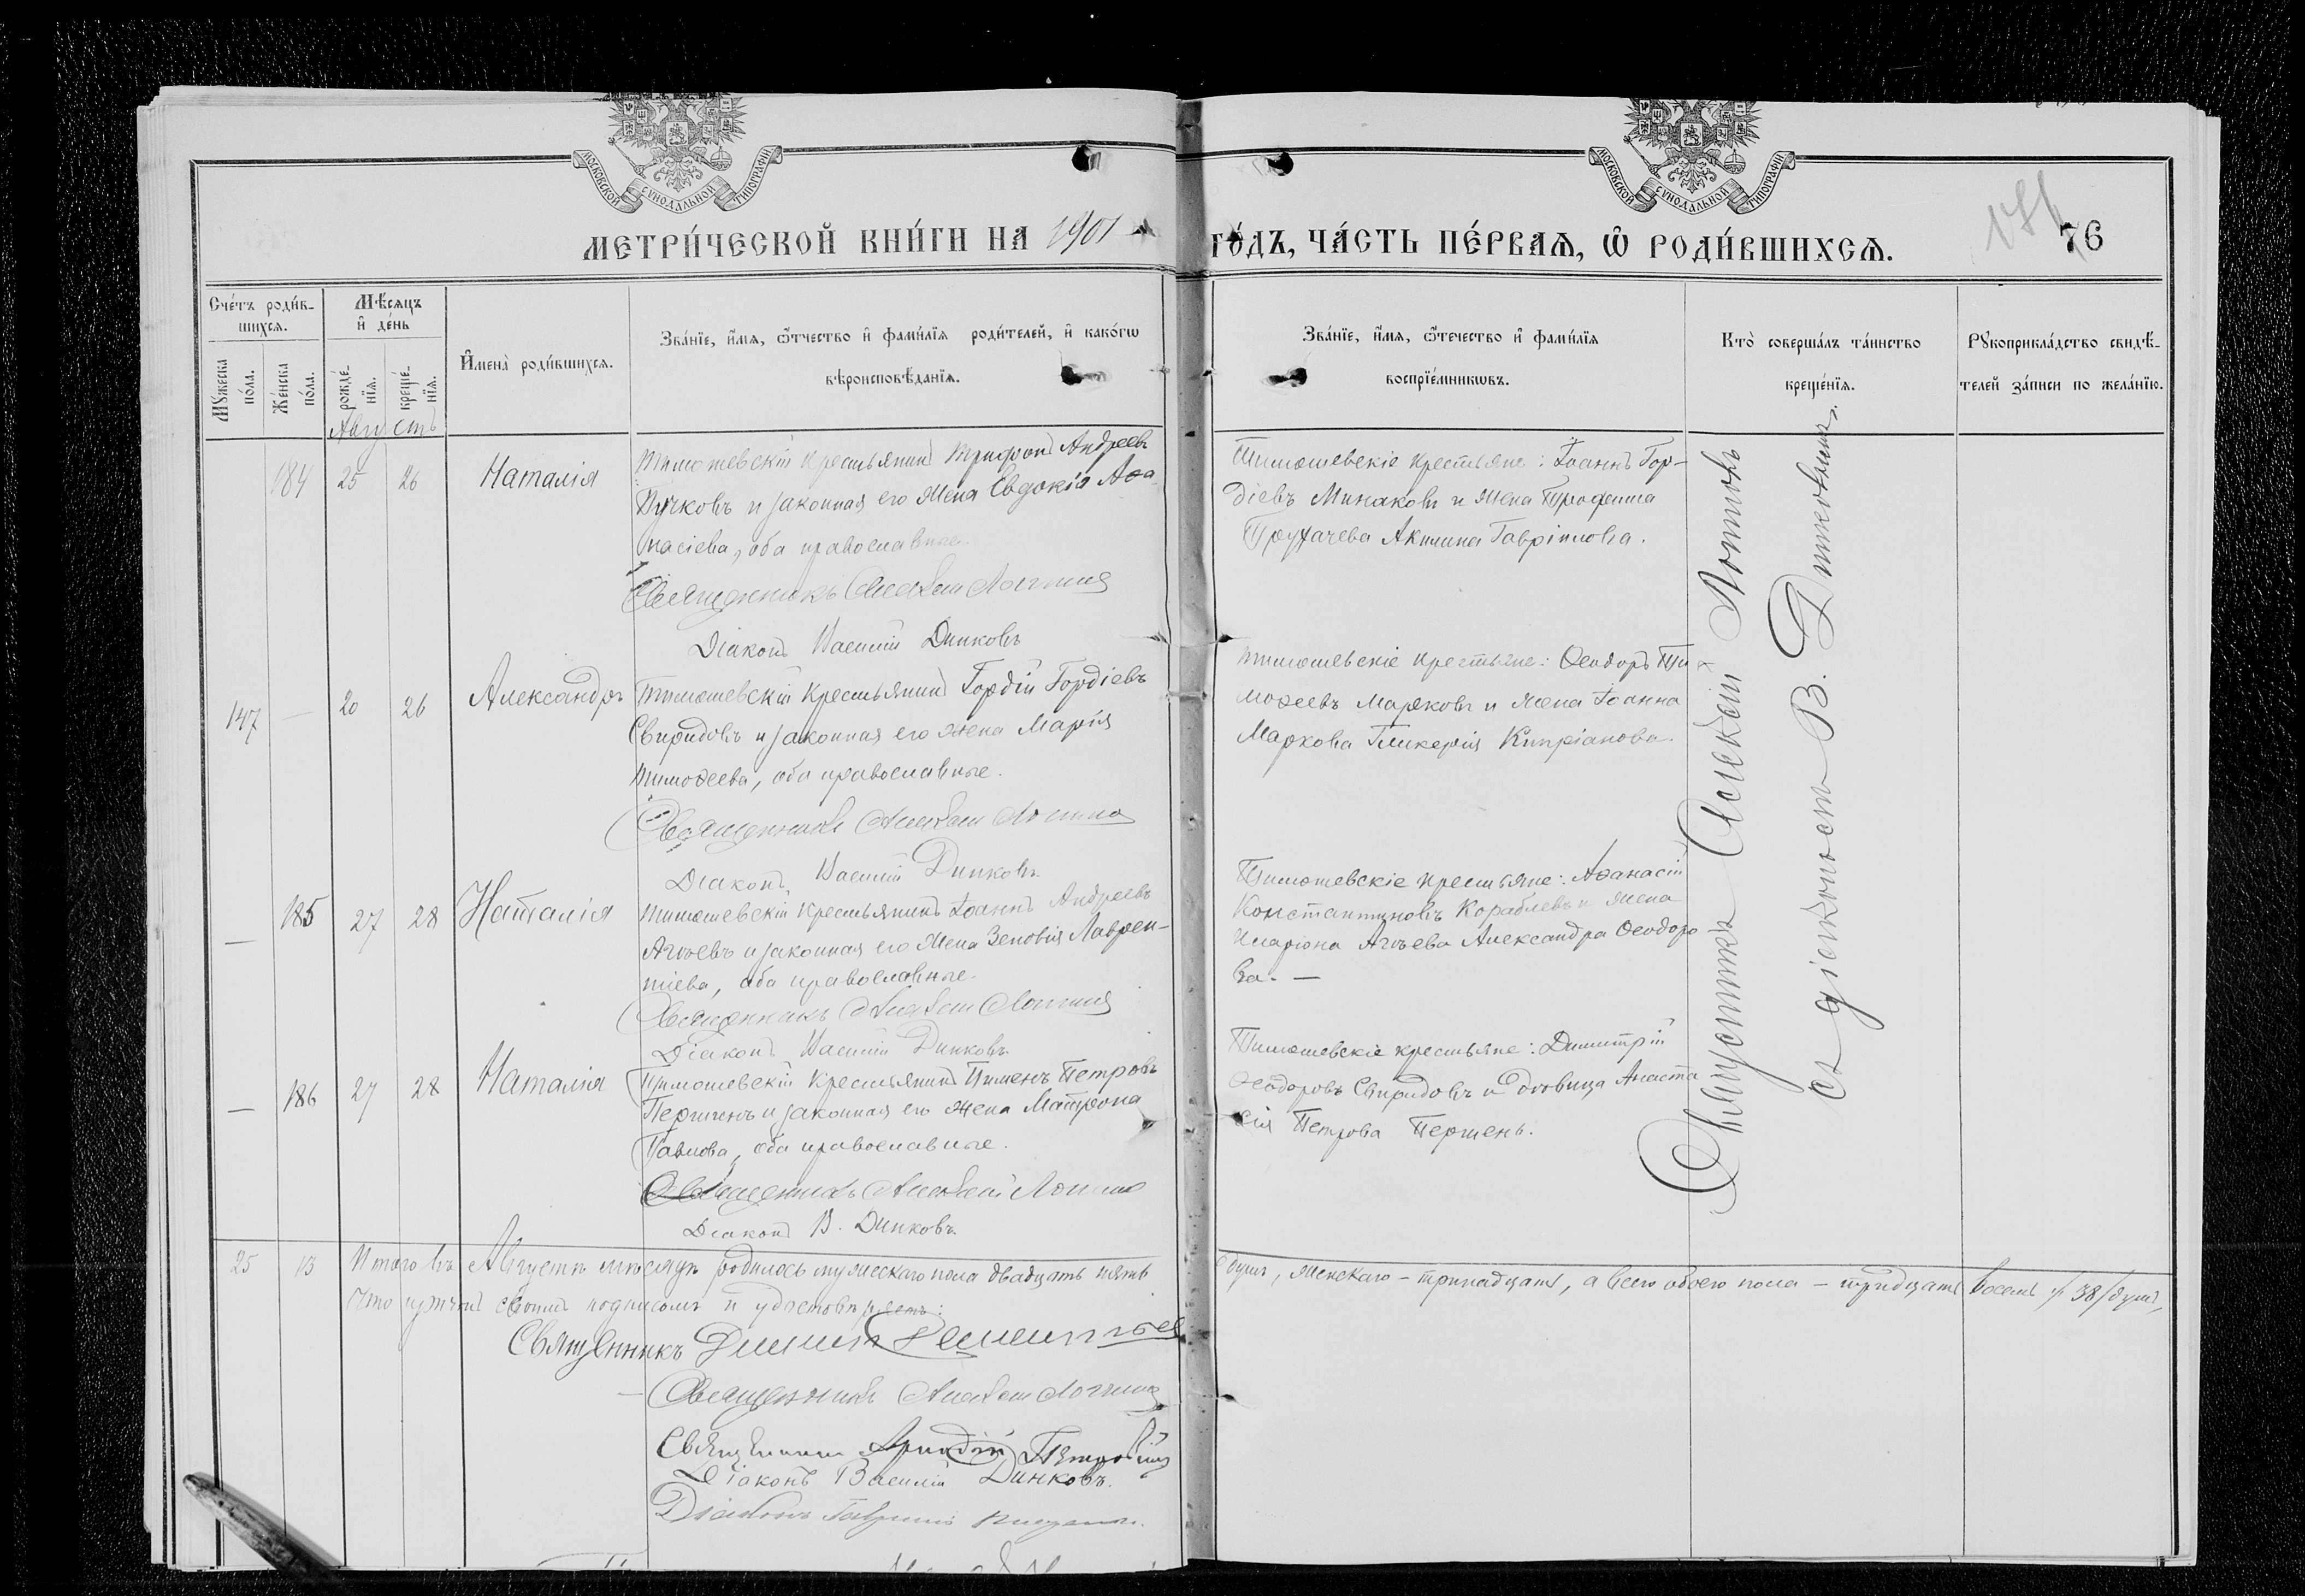 МОСКОВСКОЙ СѴНОДАЛЬНОЙ ТИПОГРАФІИ
МОСКОВСКОЙ СѴНОДАЛЬНОЙ ТИПОГРАФІИ
МЕТРИ́ЧЕСКОЙ КНИ́ГИ НА 1901
ГО́ДЪ, ЧА́СТЬ ПЕ́РВАЯ, Ѡ РОДИ́ВШИХСЯ.
76
Сче́тъ роди́в-
шихся.
Мꙋ́жеска по́ла.
Же́нска по́ла.
Мѣ́сяцъ
и҆ де́нь
рожде́-нїя.
креще́-нїя.
И҆мена̀ роди́вшихся.
Зва́нїе, и҆́мя, ѻ҆́тчество и҆ фами́лїя роди́телей, и҆ како́гѡ
вѣроисповѣ́данїя.
Зва́нїе, и҆́мя, ѻ҆́течество и҆ фами́лїя
воспрїе́мникѡвъ.
Кто̀ соверша́лъ та́инство
креще́нїя.
Рꙋкоприкла́дство свидѣ́-
телей за́писи по жела́нїю.
Августъ
184 25 26 Наталія
Тимошевскій крестьянинъ Трифонъ Андреевъ
Пучковъ и законная его жена Евдокія Аѳа
насіева, оба православные.
Священникъ Алексѣй
Діаконъ Василій Динковъ
Тимошевскіе крестьяне: Іоаннъ Гор-
діевъ Минаковъ и жена Трофима
Трухачева Акилина Гавріилова.
147 — 20 26 Александръ
Тимошевскій крестьянинъ Гордій Гордіевъ
Свиридовъ и законная его жена Марія
Тимоѳеева, оба православные.
Священникъ Алексѣй
Діаконъ Василій Динковъ
Тимошевскіе крестьяне: Ѳеодоръ Ти
моѳеевъ Марковъ и жена Іоанна
Маркова Гликерія Кипріанова.
— 185 27 28 Наталія
Тимошевскій крестьянинъ Іоаннъ Андреевъ
Агѣевъ и законная его жена Зеновія Лаврен-
тіева, оба православные.
Священникъ Алексѣй
Діаконъ Василій Динковъ
Тимошевскіе крестьяне: Аѳанасій
Константиновъ Кораблевъ и жена
Иларіона Агѣева Александра Ѳеодоро
ва. —
— 186 27 28 Наталія
Тимошевскій крестьянинъ Пименъ Петровъ
Першенъ и законная его жена Матрона
Павлова, оба православные.
Священникъ Алексѣй
Діаконъ В. Динковъ
Тимошевскіе крестьяне: Димитрій
Ѳеодоровъ Свиридовъ и дѣвица Анаста
сія Петрова Першень.
Священникъ Алексѣй
съ діакономъ В. Динковымъ.
25 13 Итого въ Августѣ мѣсяцѣ родилось мужескаго пола двадцать пять
душъ, женскаго – тринадцать, а всего обоего пола – тридцать восемь /38/ душъ,
что причтъ своимъ подписомъ и удостовѣряетъ:
Священникъ
Священникъ Алексѣй
Священникъ
Діаконъ Василій Динковъ.
Діаконъ Гавріилъ